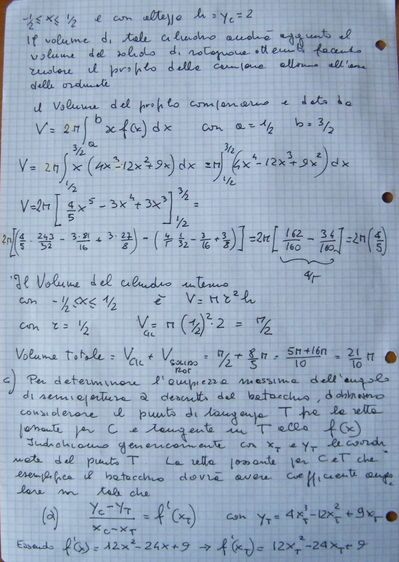 -1/2 ≤ x ≤ 1/2 e con altezza h = y_C = 2
Il volume di tale cilindro andrà aggiunto al
volume del solido di rotazione ottenuto facendo
ruotare il profilo della campana attorno all'asse
delle ordinate
Il volume del profilo campanario è dato da
V = 2π ∫_a^b x f(x) dx con a = 1/2 b = 3/2
V = 2π ∫_{1/2}^{3/2} x (4x³ - 12x² + 9x) dx = 2π ∫_{1/2}^{3/2} (4x⁴ - 12x³ + 9x²) dx
V = 2π [4/5 x⁵ - 3x⁴ + 3x³]_{1/2}^{3/2} =
2π[(4/5 · 243/32 - 3·81/16 + 3·27/8) - (4/5 · 1/32 - 3/16 + 3/8)] = 2π[162/160 - 34/160] = 2π(4/5)
4/5
Il Volume del cilindro interno
con -1/2 ≤ x ≤ 1/2 è V = π r² h
con r = 1/2 V_CIL = π (1/2)² · 2 = π/2
Volume Totale = V_CIL + V_SOLIDO ROT = π/2 + 8/5 π = 5π+16π/10 = 21/10 π
c) Per determinare l'ampiezza massima dell'angolo
di semiapertura α descritto dal batacchio, dobbiamo
considerare il punto di tangenza T fra la retta
passante per C e tangente in T alla f(x)
Indichiamo genericamente con x_T e y_T le coordi
nate del punto T La retta passante per C e T che
esemplifica il batacchio dovrà avere coefficiente ango
lare m tale che
(2) y_C - y_T / x_C - x_T = f'(x_T) con y_T = 4x_T³ - 12x_T² + 9x_T
Essendo f'(x) = 12x² - 24x + 9 → f'(x_T) = 12x_T² - 24x_T + 9